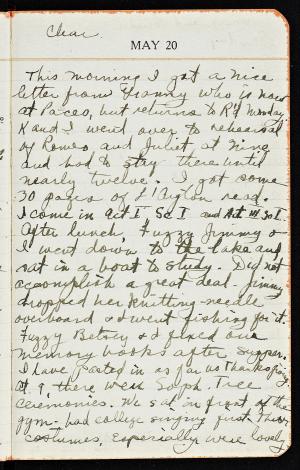 Clear.
MAY 20
This morning I got a nice
letter from Franny who is now
at Paceo, but returns to R'd Monday
K and I went over to rehearsal
of Romeo and Juliet at nine
and had to stay there until
nearly twelve. I got some
30 pages of L'Aiglon read.
I come in Act I Sc I and Act III Sc I.
After lunch, Fuzzy Jimmy &
I went down to the lake and
sat in a boat to study. Did not
accomplish a great deal. Jimmy
dropped her knitting-needle
overboard & I went fishing for it.
Fuzzy Betsey & I fixed our
memory books after supper.
I have pasted in as far as Thanksgiving
At 9, there were Soph. Tree
ceremonies. We sat in front of the
gym - had college singing first. Their
costumes, especially were lovely